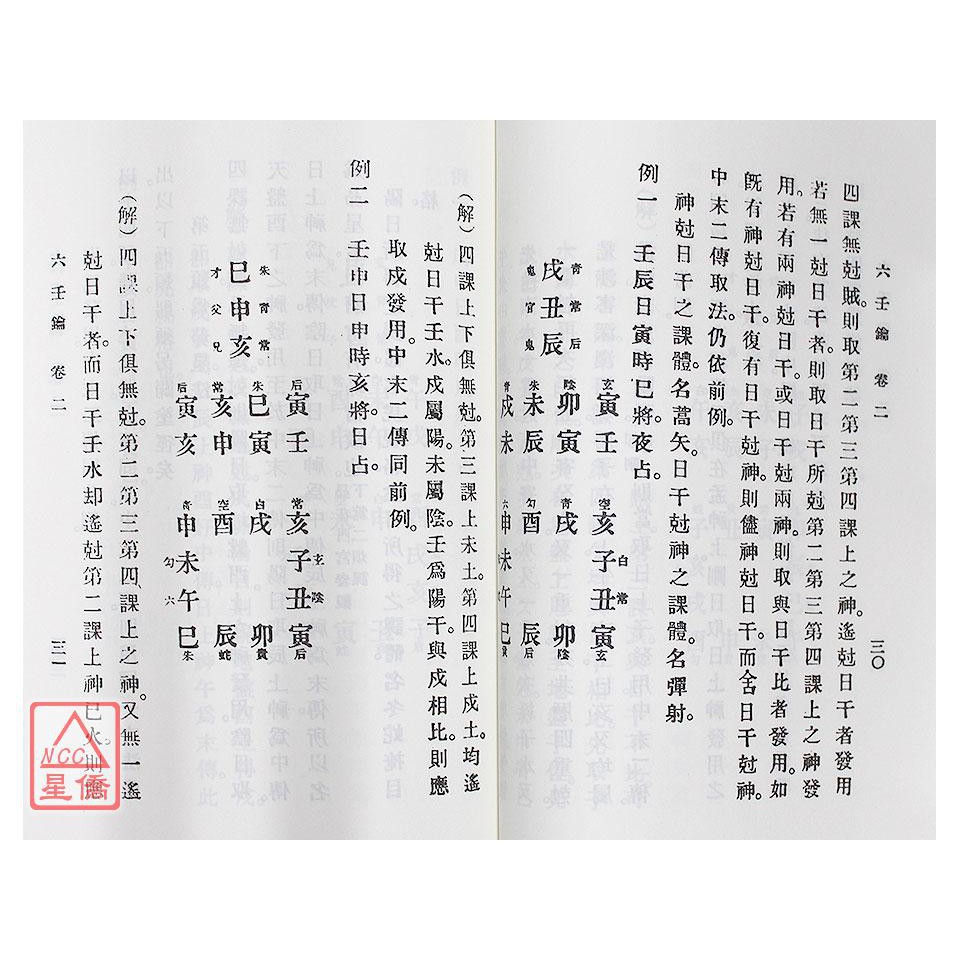 六壬鑰 卷二 三〇
四課無尅賊。則取第二第三第四課上之神。遙尅日干者發用
若無一尅日干者。則取日干所尅第二第三第四課上之神發
用。若有兩神尅日干。或日干尅兩神。則取與日干比者發用。如
旣有神尅日干。復有日干尅神。則儘神尅日干。而舍日干尅神。
中末二傳取法。仍依前例。
神尅日干之課體。名蒿矢。日干尅神之課體。名彈射。
例一 壬辰日寅時巳將。夜占。
青戌鬼
常丑官
后辰鬼
玄寅壬
陰卯寅
朱未辰
青戌未
空亥 青戌 勾酉 六申
白子 未
常丑 午
玄寅 陰卯 后辰 巳
(解)四課上下俱無尅。第三課上未土。第四課上戌土。均遙
尅日干壬水。戌屬陽。未屬陰。壬爲陽干。與戌相比。則應
取戌發用。中末二傳同前例。
例二 壬申日申時亥將。日占。
朱巳才
青申父
常亥兄
后寅壬
朱巳寅
常亥申
后寅亥
常亥 白戌 空酉 青申
玄子 勾未
陰丑 六午
后寅 貴卯 蛇辰 朱巳
(解)四課上下俱無尅。第二第三第四課上之神。又無一遙
尅日干者。而日干壬水却遙尅第二課上神巳火。則應
六壬鑰 卷二 三一
NCC
星僑